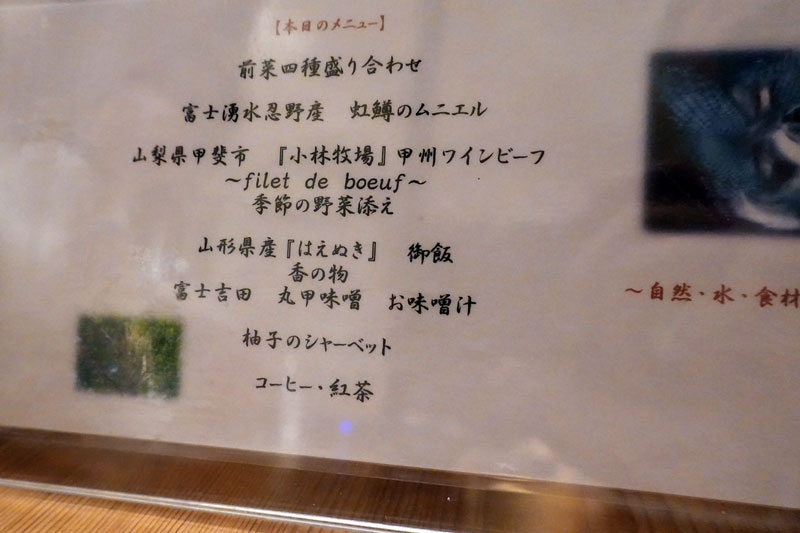 【本日のメニュー】
前菜四種盛り合わせ
富士湧水忍野産　虹鱒のムニエル
山梨県甲斐市　『小林牧場』甲州ワインビーフ
～filet de boeuf～
季節の野菜添え
山形県産『はえぬき』　御飯
香の物
富士吉田　丸甲味噌　お味噌汁
柚子のシャーベット
コーヒー・紅茶
～自然・水・食材